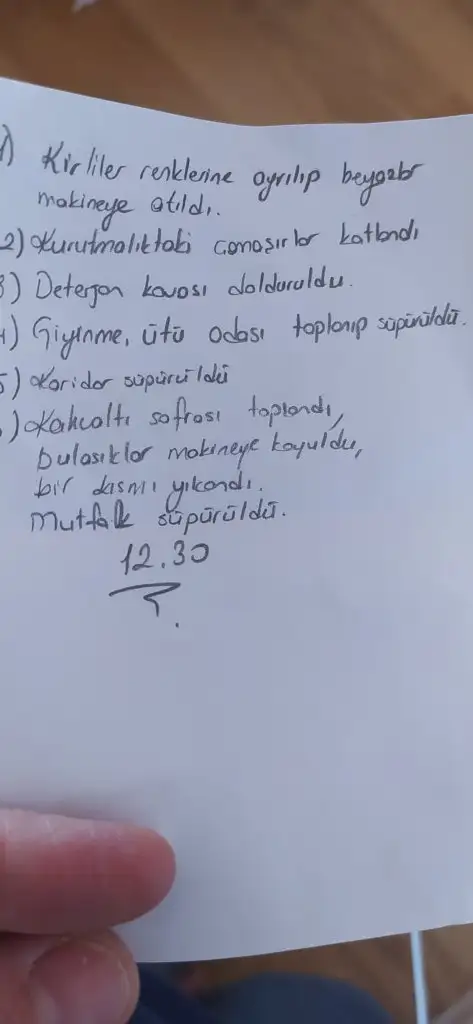 1) Kirliler renklerine ayrılıp beyazlar
makineye atıldı.
2) Kurutmalıktaki çamaşırlar katlandı
3) Deterjan kovası dolduruldu.
4) Giyinme, ütü odası toplanıp süpürüldü.
5) Koridor süpürüldü
) Kahvaltı sofrası toplandı,
bulaşıklar makineye koyuldu,
bir kısmı yıkandı.
Mutfak süpürüldü.
12.30